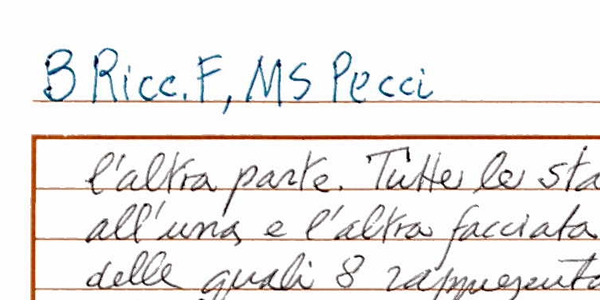 B Ricc. F, MS Pecci
l'altra parte. Tutte le sta
all'una e l'altra facciata
delle quali 8 rappresenta